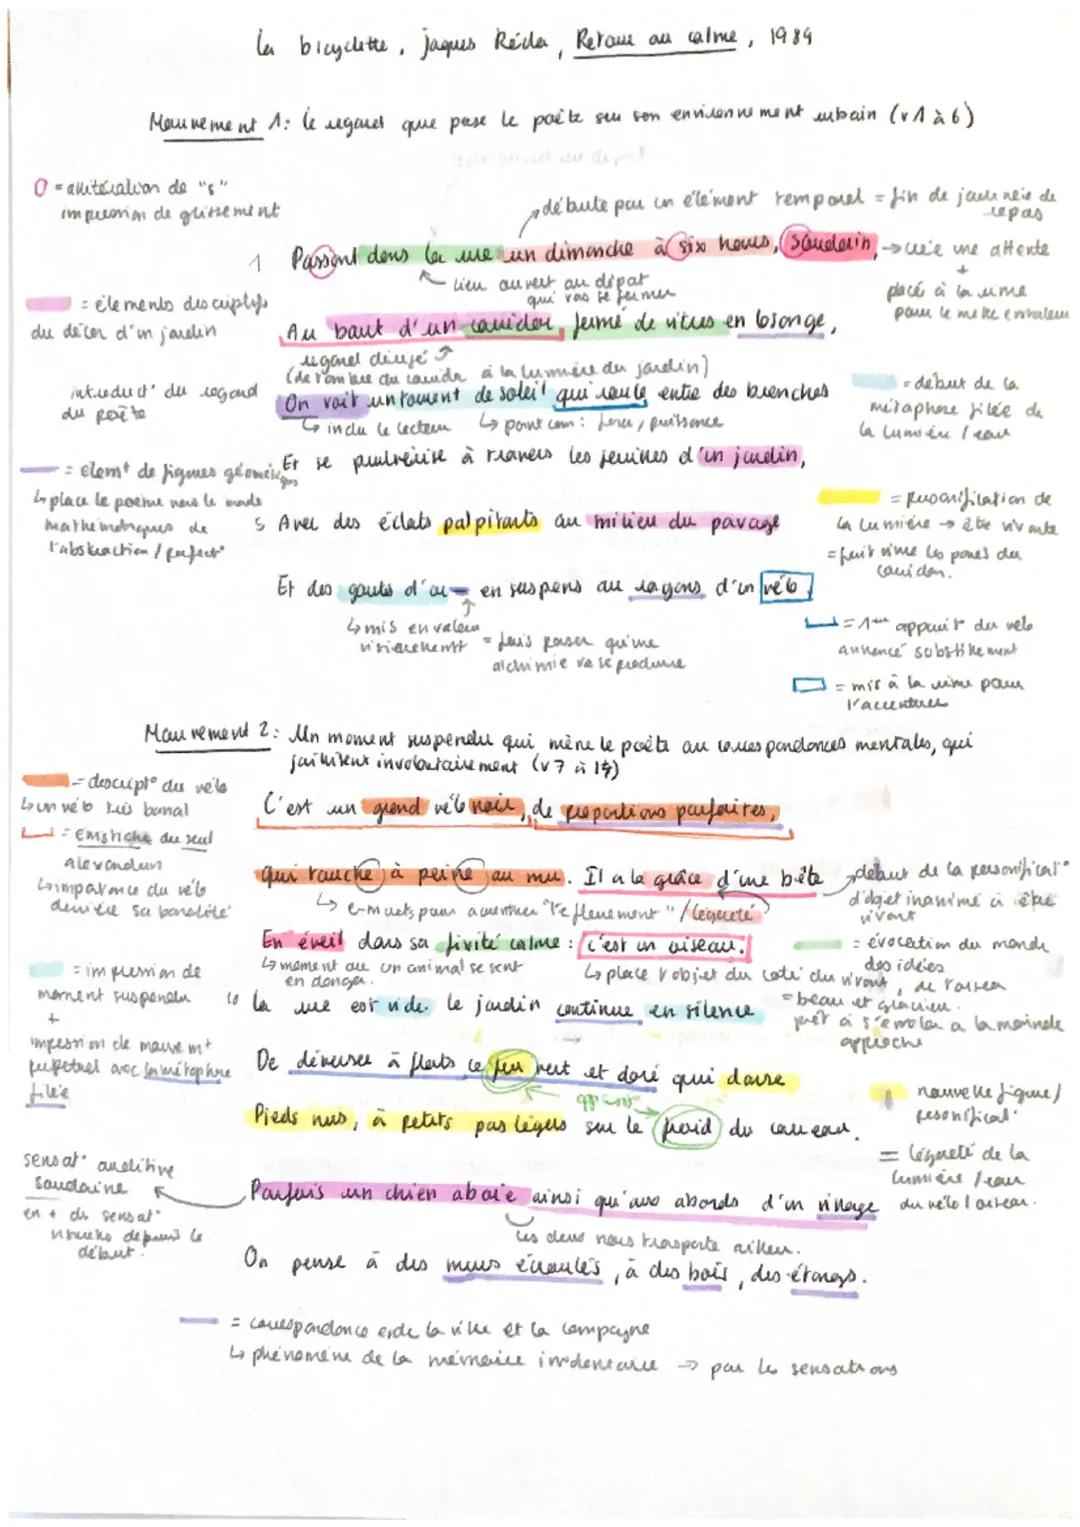 La bicyclette, Jaques Réda, Retour au calme, 1989
Mouvement 1: le regard que pose le poète sur son environnement urbain (v 1 à 6)
O = allitération de "s"
impression de glissement
débute par un élément temporel = fin de journée de
repas
1 Passant dans la rue un dimanche à six heures, soudain,
→ crée une attente
+
placé à la rime
pour le mettre en valeur
lieu ouvert au départ
qui vas se fermer
= éléments descriptifs
du décor d'un jardin
Au bout d'un couidor fermé de vitres en losange,
regard dirigé
(de l'ombre du couidor à la lumière du jardin)
introduct° du regard
du poète
On voit un torrent de soleil qui roule entre des branches
↳ inclu le lecteur ↳ point com : force, puissance
= début de la
métaphore filée de
la lumière / eau
= elemt de figures géométriques
↳ place le poème vers le monde
mathématiques de
l'abstraction / parfait
Et se pulvérise à travers les feuilles d'un jardin,
5 Avec des éclats palpitants au milieu du pavage
= personification de
la lumière → être vivante
= fait vivre les pavés du
couidor.
Et des gouts d'or – en suspens au rayons d'un vélo
↳ mis en valeur
visuellement
= fais penser qu'une
alchimie va se produire
= 1ère apparit° du vélo
annoncé subtilement
= mis à la rime pour
l'accentuer
Mouvement 2: Un moment suspendu qui mène le poète au correspondances mentales, qui
jaillissent involontairement (v 7 à 14)
= descript° du vélo
↳ un vélo très banal
C'est un grand vélo noir, de proportions parfaites,
= emstiche du seul
alexandrin
↳ importance du vélo
derrière sa banalité
qui touche à peine au mur. Il a la grâce d'une bête
↳ e-muets pour accentuer "l'effleurement" / légèreté
début de la personificat°
d'objet inanimé à être
vivant
En éveil dans sa fixité calme : c'est un oiseau.
↳ moment où un animal se sent
en danger.
↳ place l'objet du coté du vivant, de l'oiseau
= beau et gracieux.
prêt à s'envoler a la moindre
approche
= évocation du monde
des idées
= impression de
moment suspendu
+
impression de mouvemt
perpetuel avec la métaphore
filée
10 la rue est vide. le jardin continue en silence
De déverser à flots ce feu vert et doré qui danse
opposit°
Pieds nus, à petits pas légers sur le froid du carreau.
nouvelle figure /
personificat°
= légèreté de la
lumière / eau
du vélo / oiseau.
sensat° auditive
soudaine
en + des sensat°
visuelles depuis le
début.
Parfois un chien aboie ainsi qu'aux abords d'un village
les deux nous transporte ailleur.
On pense à des murs écroulés, à des bois, des étangs.
= correspondance entre la ville et la campagne
↳ phénomène de la mémoire involontaire → par les sensations